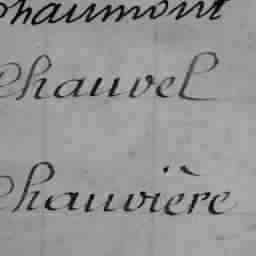 Chaumont
Chauvel
Chauvière